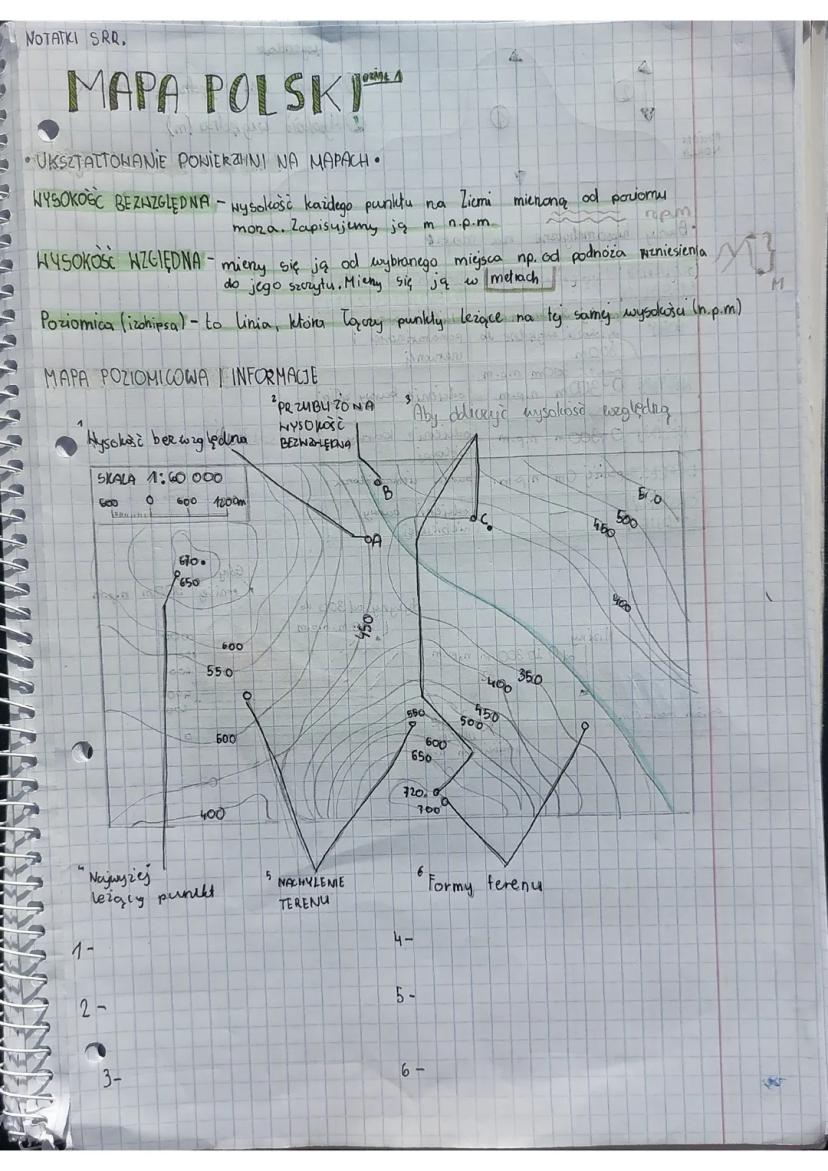 NOTATKI SRR.
MAPA POLSKI
• UKSZTAŁTOWANIE POWIERZCHNI NA MAPACH •
WYSOKOŚĆ BEZWZGLĘDNA - wysokość każdego punktu na Ziemi mierzona od poziomu
morza. Zapisujemy ją m n.p.m.
WYSOKOŚĆ WZGLĘDNA - mierzy się ją od wybranego miejsca np. od podnóża wzniesienia
do jego szczytu. Mierzy się ją w metrach
M
Poziomica (izohipsa) - to linia, która łączy punkty leżące na tej samej wysokości (n.p.m)
MAPA POZIOMICOWA I INFORMACJE
1 Wysokość bezwzględna
2 PRZYBLIŻONA
WYSOKOŚĆ
BEZWZGLĘDNA
3 Aby obliczyć wysokość względną
SKALA 1:60 000
600 0 600 1200m
B
A
C
510
500
450
400
670
650
450
600
550
350
400
450
500
550
600
650
500
720
700
400
4 Najwyżej
leżący punkt
5 NACHYLENIE
TERENU
6 Formy terenu
1-
4-
2-
5-
3-
6-